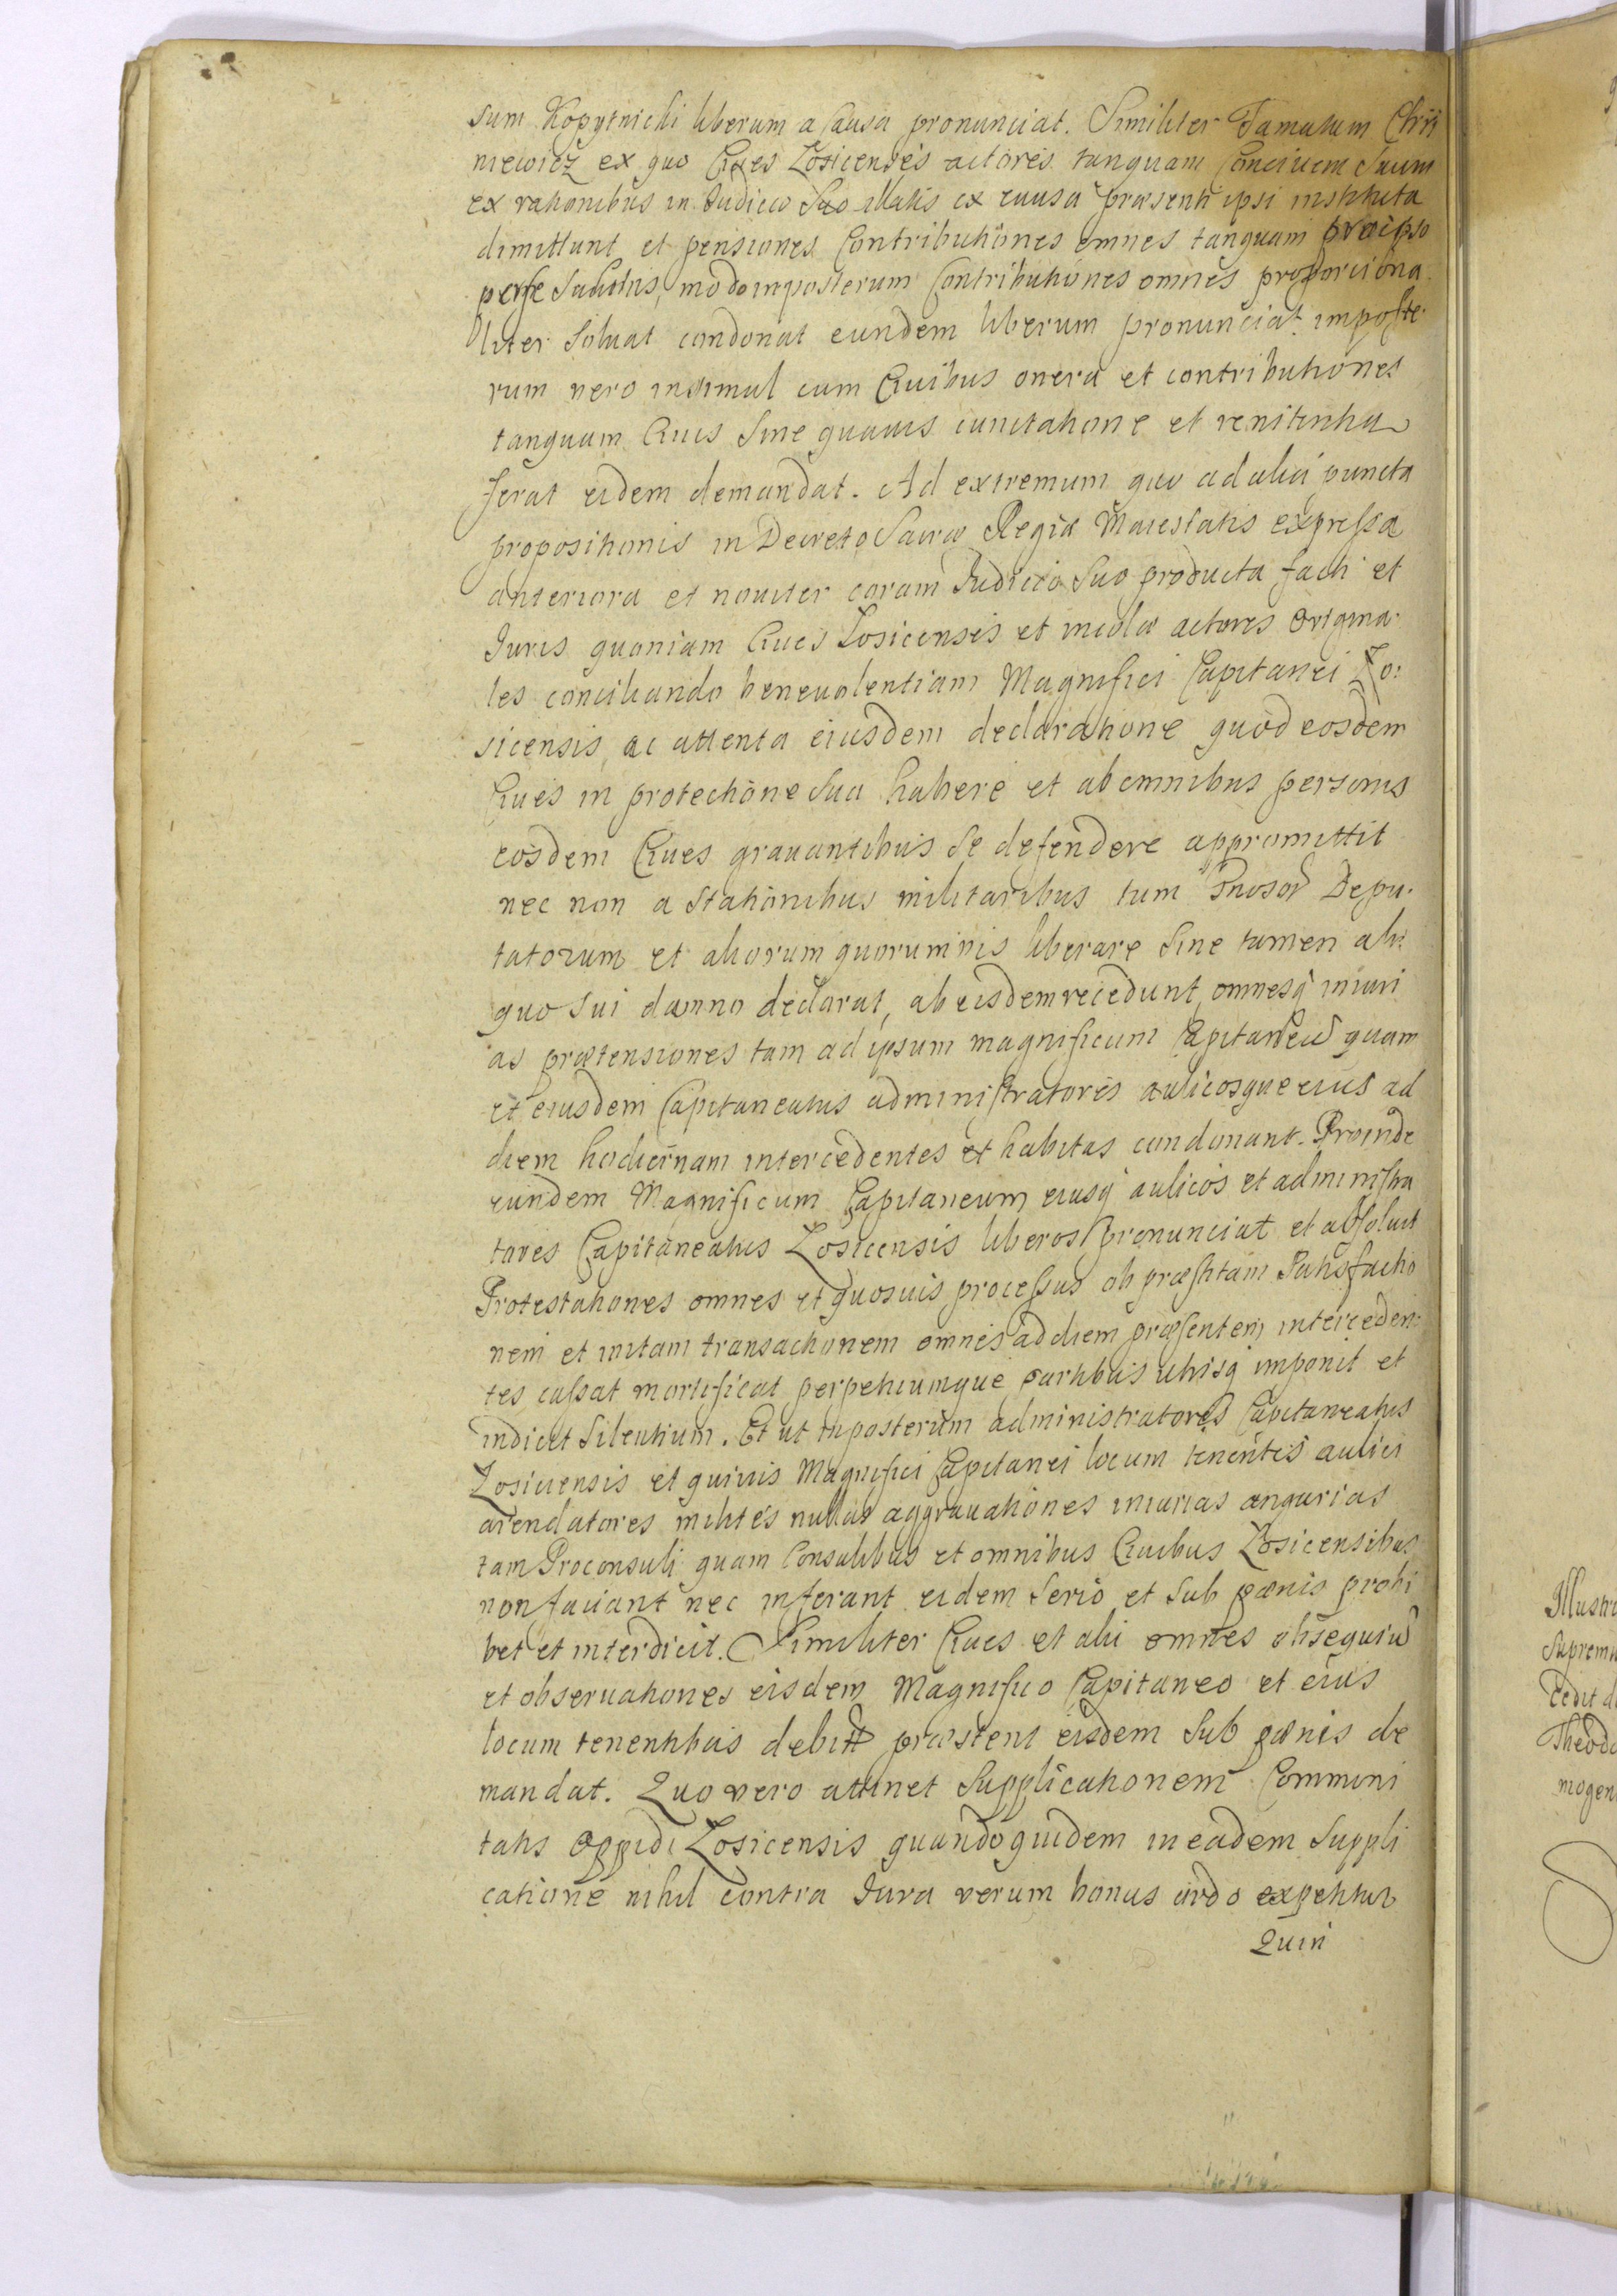 sum Kopytnicki liberum a Causa pronunciat. Similiter Famatum Chrii
niewicz ex quo Ciues Łosicenses actores tanquam Conciuem Suum
ex rationibus in Judicio Suo illatis ex causa præsenti ipsi instituta
dimittunt et pensiones Contributiones omnes tanquam præ ipso
perse Solutas, modo inposterum Contributiones omnes proporciona
liter Soluat condonat eundem liberum pronunciat imposte
rum vero insimul cum Ciuibus onera et contributiones
tanquam Ciuis Sine quauis cunctatione et renitentia
ferat eidem demandat. Ad extremum quo ad alia puncta
propositionis in Decreto Sacræ Regiæ Maiestatis expressa
anteriora et nouiter coram Judicio Suo producta facti et
Juris quoniam Ciues Łosicenses et incolæ actores Origina
les conciliando beneuolentiam Magnifici Capitanei Ło:
sicensis, ac attenta eiusdem declaratione quod eosdem
Ciues in protectione Sua habere et ab omnibus personis
eosdem Ciues grauantibus Se defendere appromittit
nec non a Stationibus militaribus tum Depu.
tatorum et aliorum quorumvis liberare Sine tamen ali
quo Sui damno declarat, ab eisdem recedunt, omnesq iniuri
as prætensiones tam ad ipsum magnificum Capitaneū quam
et eiusdem Capitaneatus administratores aulicosque eius ad
diem hodiernam intercedentes et habitas condonant. Proinde
eundem Magnificum Capitaneum, eiusq aulicos et administra
tores Capitaneatus Łosicensis liberos pronunciat et absoluit
Protestationes omnes et quosuis processus ob præstitam Satisfactio
nem et initam transactionem omnes ad diem præsentem interceden:
tes cassat mortificat perpetuumque partibus utrisq imponit et
indicit Silentium. Et ut inposterum administratores Capitaneatus
Łosicensis et quiuis Magnifici Capitanei locum tenentes aulici
arendatores milites nullas aggrauationes iniurias angarias
tam Proconsuli quam Consulibus et omnibus Ciuibus Łosicensibus
non faciant nec inferant eidem Serio et Sub pænis prohi
bet et interdicit. Similiter Ciues et alii omnes obsequiū
et obseruationes eisdem Magnifico Capitaneo et eius
locum tenentibus præstent eisdem Sub pænis de
mandat. Quo vero attinet Supplicationem Communi
tatis Oppidi Łosicensis quandoquidem in eadem Suppli
catione nihil contra Jura verum bonus ordo expetitur
Quin
Illustri
Supremu
Cedit
Theodo
mogen